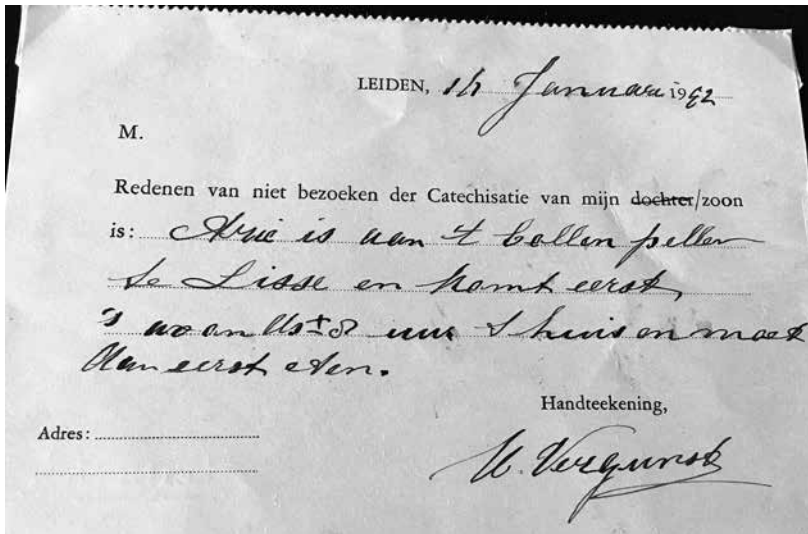 LEIDEN, 14 Januari 19
M.
Redenen van niet bezoeken der Catechisatie van mijn dochter/zoon
is: Arie is aan 't bollen pellen
te Lisse en komt eerst
's avonds ± 8 uur thuis en moet
dan eerst eten.
Handteekening,
Adres:
Vergunst